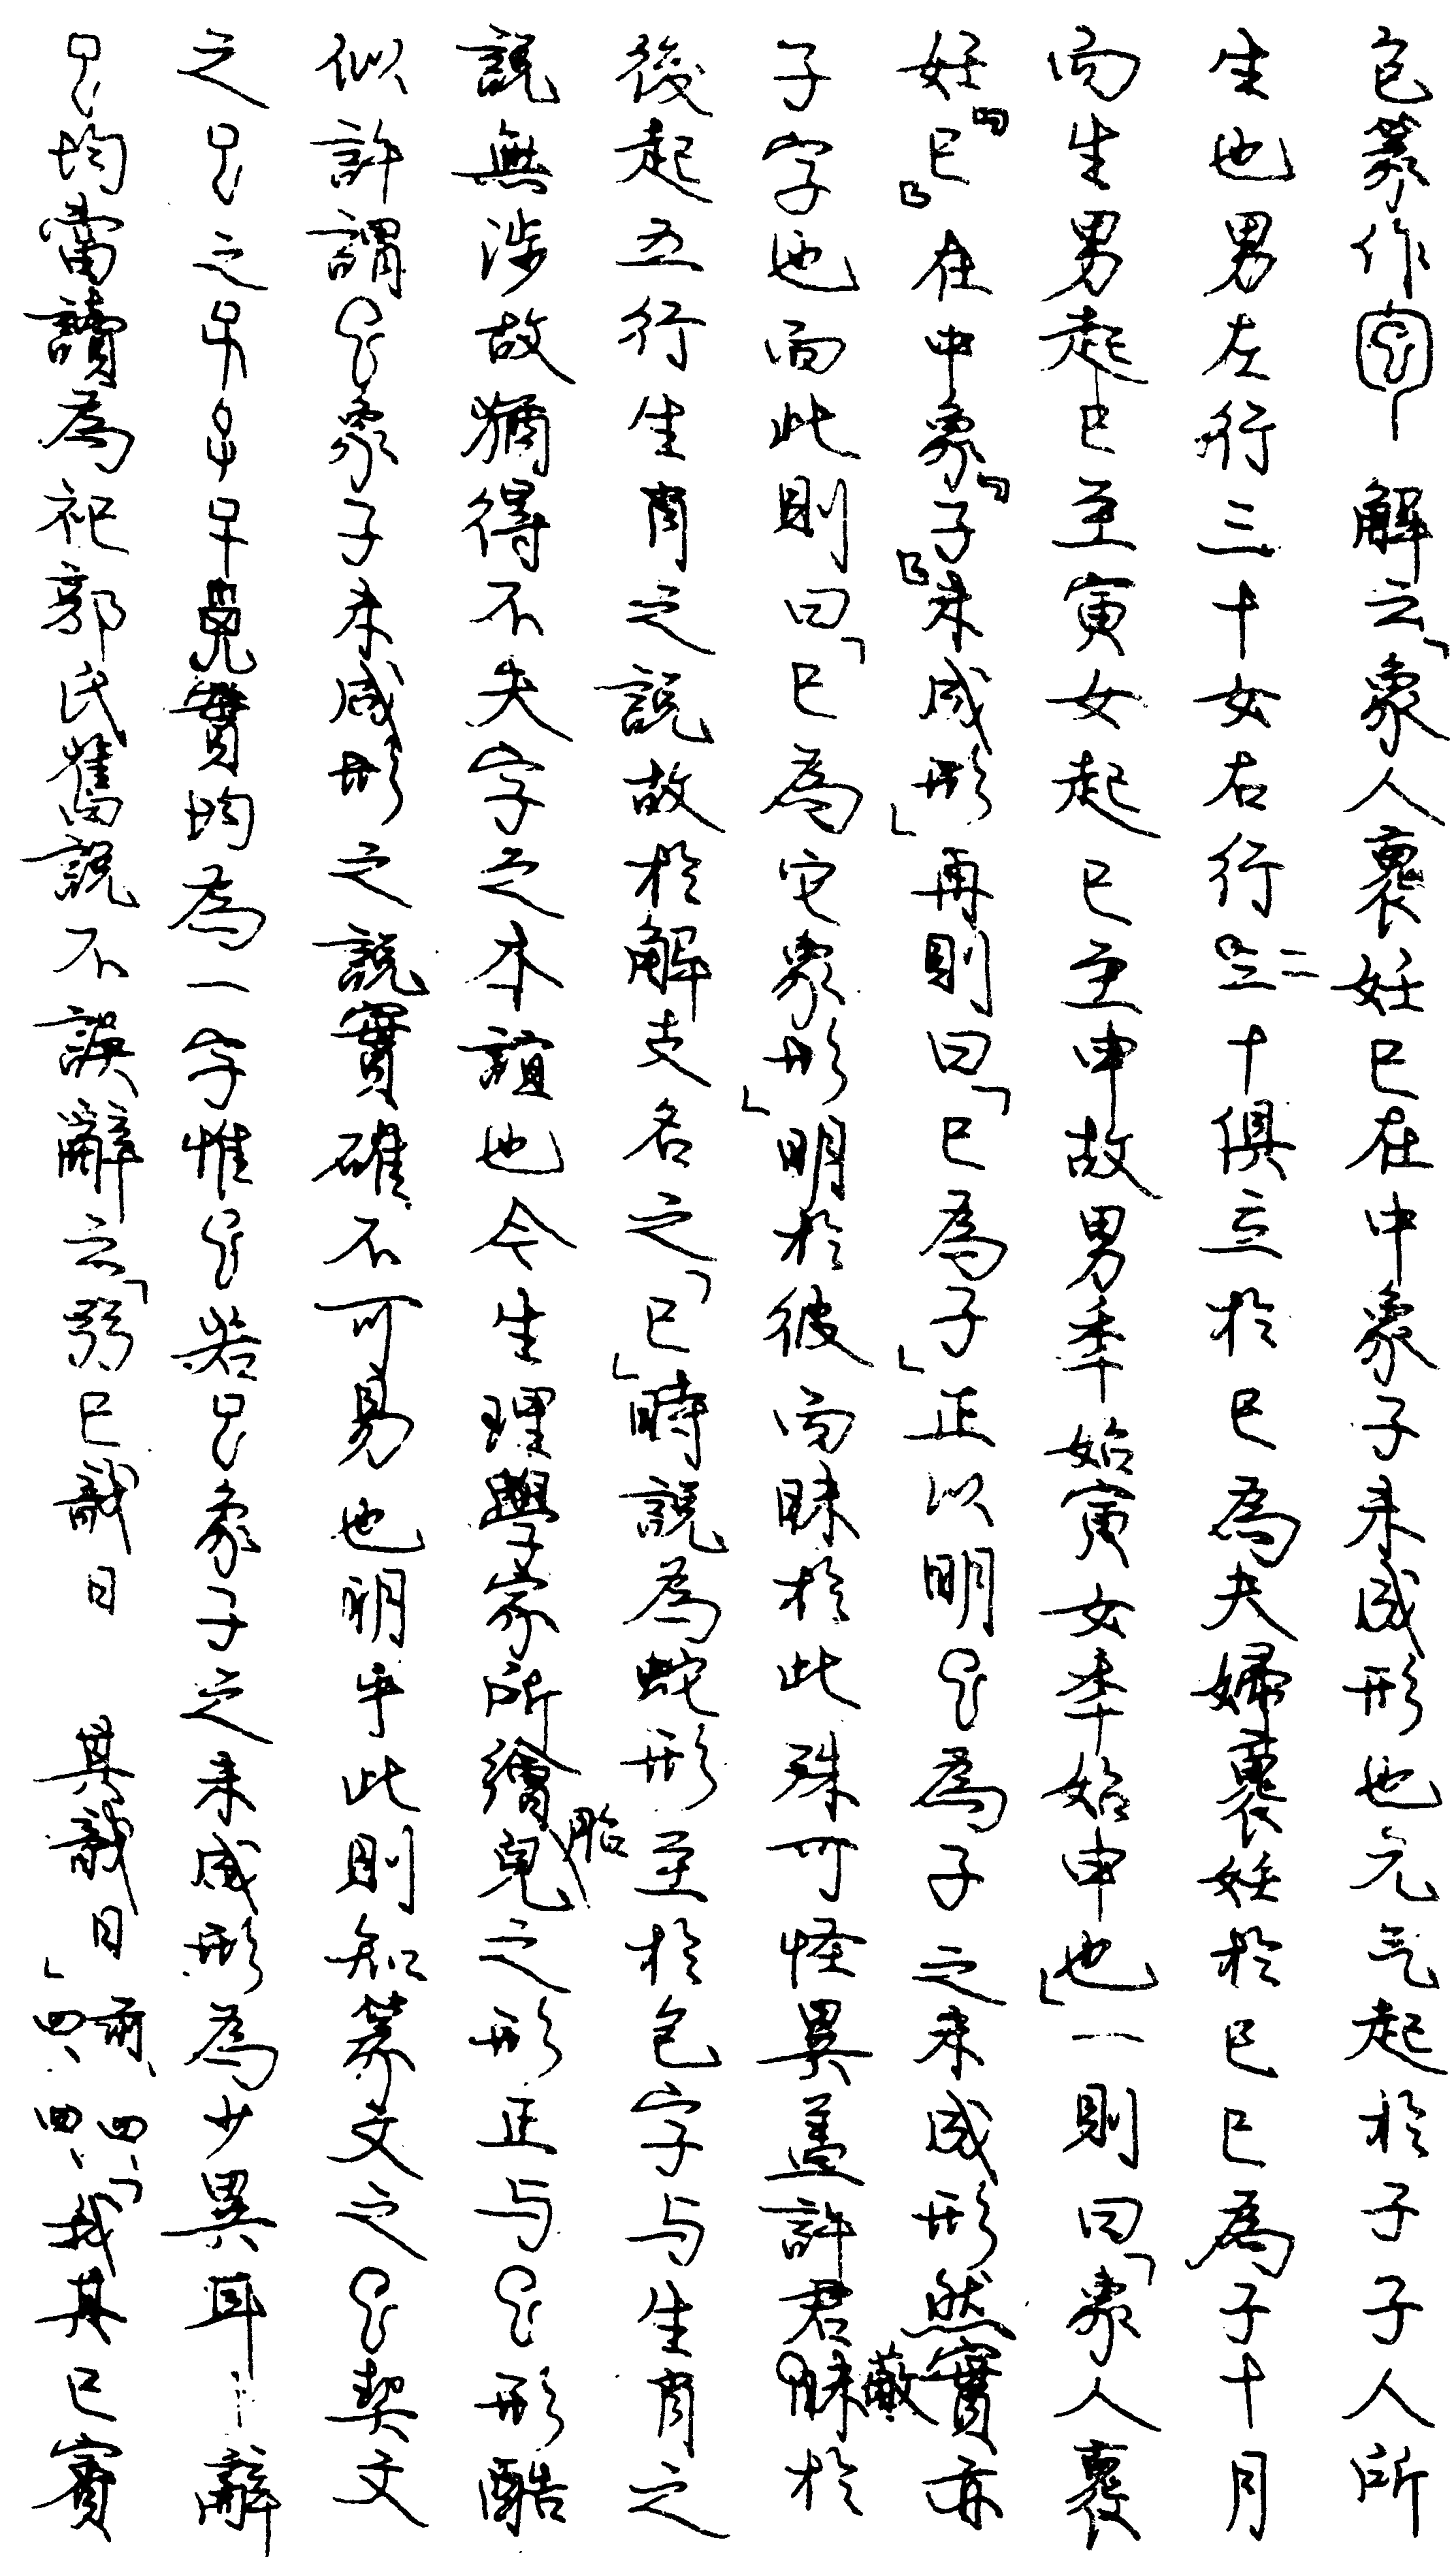 包篆作解云「象人裹妊巳在中象子未成形也元气起於子子人所
生也男左行三十女右行二十俱立於巳為夫婦裹妊於巳巳為子十月
而生男起巳至寅女起巳至申故男秊始寅女秊始申也」一則曰「象人裹
妊『巳』在中象『子』未成形」再則曰「巳為子」正以明為子之未成形然實亦
子字也而此則曰「巳為它象形」明於彼而昧於此殊可怪異蓋許君蔽於
後起五行生肖之說故於解支名之「巳」時說為蛇形至於包字与生肖之
說無涉故猶得不失字之本誼也今生理學家所繪胎兒之形正与形酷
似許謂象子未成形之說實確不可易也明乎此則知篆文之契文
之之均為一字惟若象子之未成形為少異耳辭
均當讀為祀郭氏舊說不誤辭云「弜巳酘日 其酘日」前、四、四、四、「哉其巳賓